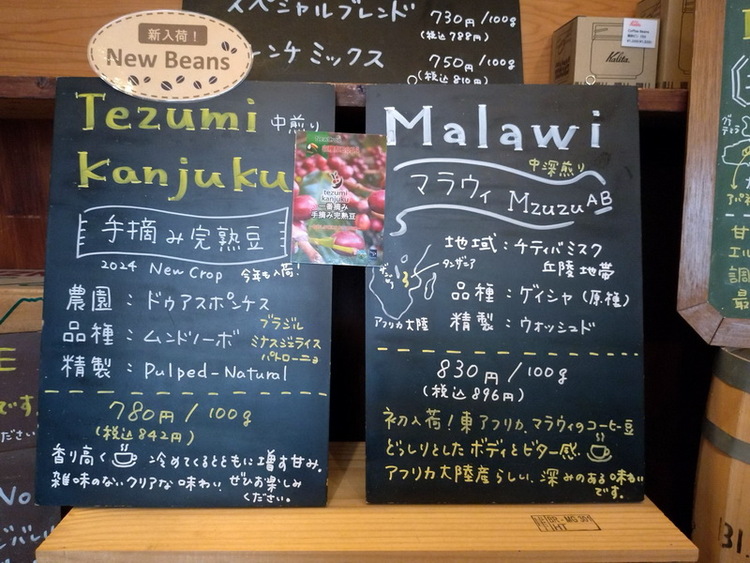 スペシャルブレンド
730円/100g
(税込788円)
750円/100g
(税込810円)
新入荷!
New Beans
Kalita
Tezumi
中煎り
Kanjuku
手摘み完熟豆
2024 New Crop 今年も入荷!
農園:ドゥアスポンテス
品種:ムンドノーボ
ブラジル
ミナスジェライス
パトローニョ
精製:Pulped-Natural
780円/100g
(税込842円)
香り高く 冷めてくるとともに増す甘み。
雑味のないクリアな味わい。ぜひお楽しみ
ください。
tezumi
kanjuku
一番摘み
手摘み完熟豆
Malawi
中深煎り
マラウィ Mzuzu AB
地域:チティパミスク
丘陵地帯
タンザニア
アフリカ大陸
品種:ゲイシャ(原種)
精製:ウォッシュド
830円/100g
(税込896円)
初入荷!東アフリカ、マラウィのコーヒー豆
どっしりとしたボディとビター感。
アフリカ大陸産らしい、深みのある味わい
です。